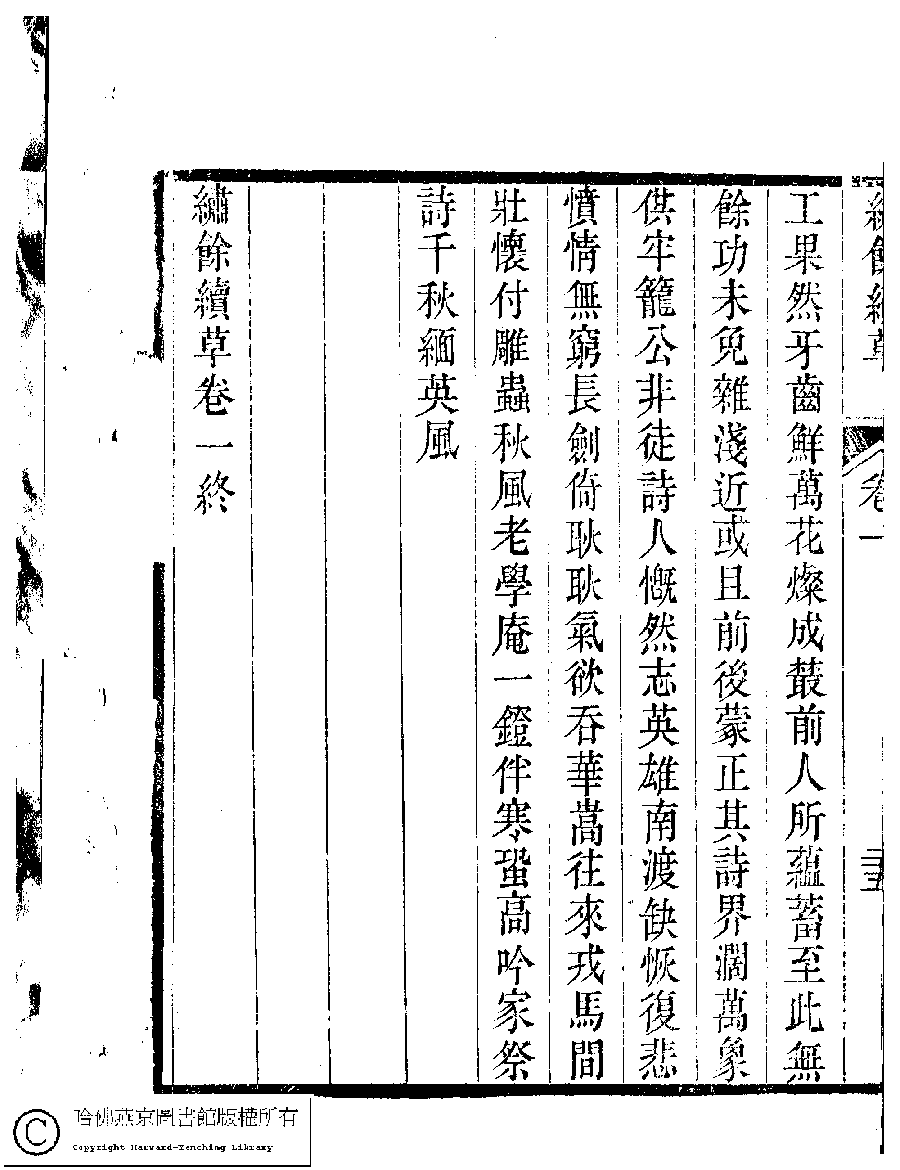 繡餘續草 卷一
工果然牙齒鮮萬花燦成叢前人所蘊蓄至此無
餘功未免雜淺近或且前後蒙正其詩界濶萬象
供牢籠公非徒詩人慨然志英雄南渡缺恢復悲
憤情無窮長劍倚耿耿氣欲吞華嵩往來戎馬間
壯懷付雕蟲秋風老學庵一鐙伴寒蛩高吟家祭
詩千秋緬英風
繡餘續草卷一終
哈佛燕京圖書館版權所有
Copyright Harvard-Yenching Library